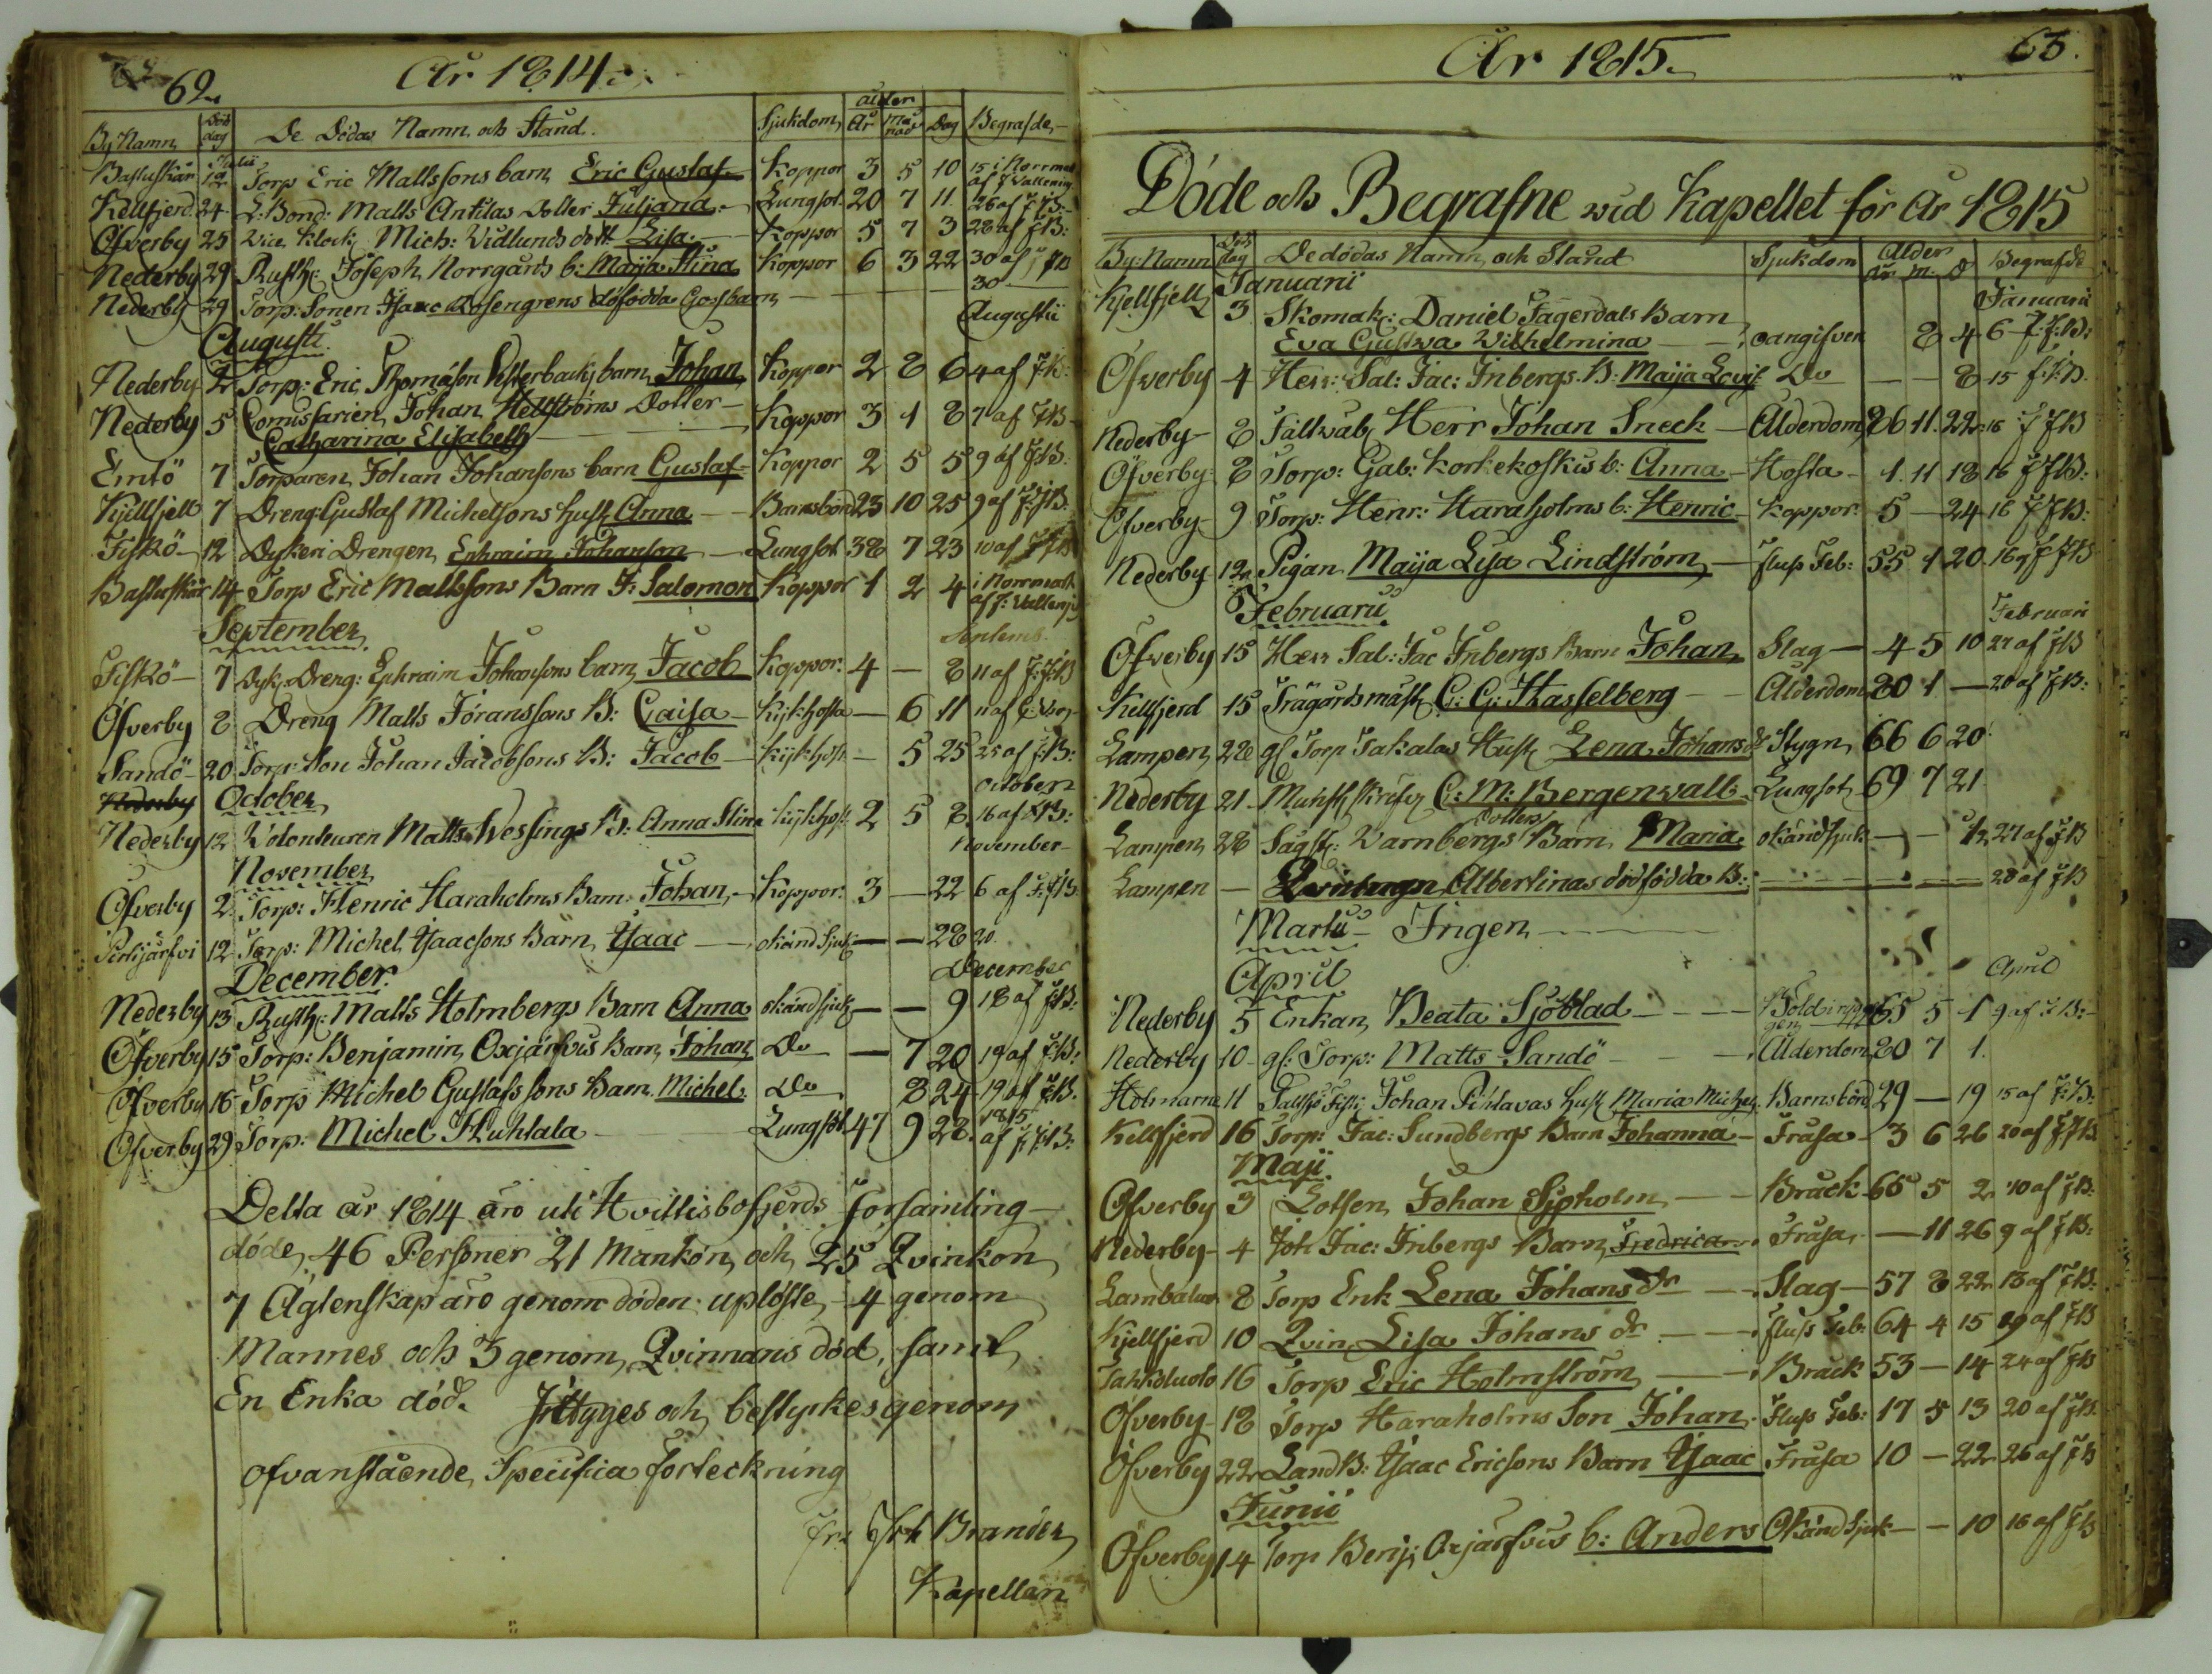 62.
År 1814.
By Namn Död dag De Dödas Namn och Stånd. Sjukdom ålder År Månad Dag Begrafde
Julii
Bastuskär 12 Torp Eric Matts sons barn Eric Gustaf Koppor 3 5 10 15 i Norrmark af
Kellfjerd 24 L: Bond: Matts Antilas Dotter Juliana Lungsot 20 7 11 26 af J:B:
Öfverby 25 Vice Klock Mich: Vidlunds dott Lisa Koppor 5 7 3 28 af J:B:
Nederby 29 Rusth: Joseph Norrgårds b: Maija Stina Koppor 6 3 22 30 af J:B
Nederby 29 Torp: Sonen Isaac Rosengrens döfödda Gossbarn — 30
Augusti. Augustii
Nederby 2 Torp: Eric Thomåson Vesterbacks barn Johan Koppor 2 8 6 4 af J:B:
Nederby 5 Comissarien Johan Hellströms Dotter
Catharina Elisabeth Koppor 3 1 8 7 af J:B
Emtö 7 Torparen Johan Johansons barn Gustaf Koppor 2 5 5 9 af J:B:
Kjellfjell 7 Dreng: Gustaf Michelsons hust Anna Barnsbörd 23 10 25 9 af J:J:B:
Fiskö 12 Dykeri Drengen Ephraim Johanson Lungsot 38 7 23 10 af J:B
Bastuskär 14 Torp Eric Mattssons Barn F: Salomon Koppor 1 2 4 i Norrmark af
September. Septemb.
Fiskö 7 Dyk: Dreng: Ephraim Johansons barn Jacob Koppor: 4 — 8 11 af J:J:B
Öfverby 8 Dreng Matts Jöranssons B: Caisa Kijkhosta — 6 11 11 af
Sandö 20 Torp: Son Johan Jacobsons B: Jacob Kijkhost — 5 25 25 af J:B:
Nederby October October
Nederby 12 Volonteuren Matts Wessings B: Anna Stina Kijkhost 2 5 8 16 af J:B:
November November
Öfverby 2 Torp: Henric Haraholms Barn: Johan Koppor: 3 — 22 6 af J:J:B
12 Torp: Michel Isaacsons Barn Isaac okänd Sjuk — — 28 20.
December. December
Nederby 13 Rusth: Matts Holmbergs Barn Anna okänd sjuk — — 9 18 af J:B:
Öfverby 15 Torp: Benjamin Oxjärfvis Barn Johan Do — 7 20 19 af J:B:
Öfverby 16 Torp Michel Gustafssons Barn Michel Do 8 24 19 af J:B.
Öfverby 29 Torp: Michel Huhtala Lungsot 47 9 28 1815 af J:J:B:
Detta år 1814 äro uti Hvittisbofjerds Församling
döde, 46 Personer 21 Mankön och 25 Qvinkön
7 Ägtenskap äro genom döden uplöste, 4 genom
Mannes och 3 genom Qvinnans död, samt
En Enka död. Intygges och bestyrkes genom
ofvanstående Specifica Förteckning
Joh Brander
Kapellan
63.
År 1815.
Döde och Begrafne wid Kapellet för år 1815
By: Namn Död dag De dödas Namn och Stånd Sjukdom Ålder år m. D Begrafde
Januarii Januarii
Kjellfjell 3 Skomak: Daniel Fagerdals Barn
Eva Gustava Vilhelmina — oangifven 8 4 6 J:J:B:
Öfverby 4 Herr: Sal: Jac: Inbergs B: Maija Lovis Do — — 8 15 J:J:B.
Nederby 8 Fältwäb: Herr Johan Sneck Ålderdom 86 11 22 16 J:J:B
Öfverby 8 Torp: Gab: Korkekoskis b: Anna Hosta 1 11 18 16 J:J:B:
Öfverby 9 Torp: Henr: Haraholms b: Henric Koppor: 5 — 24 16 J:J:B:
Nederby 12 Pigan Maija Lisa Lindström Fluss Feb: 55 1 20 16 J:J:B
Februarii Februari
Öfverby 15 Herr Sal: Jac Inbergs Barn Johan Slag 4 5 10 27 af J:B
Kellfjerd 15 Trägårdsmäst C: G: Hasselberg Ålderdom 80 1 — 20 af J:B:
Lampen 22 gl Torp Takalas Hust Lena Johans dr Stygn 66 6 20
Nederby 21 C: M: Bergenwall Lungsot 69 7 21
Lampen 28 Sagsk: Varnbergs Dotters Barn Maria okänd sjuk — — ½ 27 af J:B
Lampen — Qvinkugn Albertinas dödfödda B: — 28 af J:B
Martii Ingen
April April
Nederby 5 Enkan Beata Sjöblad 65 5 1 9 af J:B:
Nederby 10 gl: Torp: Matts Sandö Ålderdom 80 7 1.
Holmarne 11 Saltsjö Fisk: Johan Pihlavas hust Maria Michels Barnsbörd 29 — 19 15 af J:B:
Kellfjerd 16 Torp: Jac: Sundbergs Barn Johanna Frasa 3 6 26 20 af J:J:B
Maji.
Öfverby 3 Lotsen Johan Sjöholm Bråck 65 5 2 10 af J:B:
Nederby 4 Joh Jac: Inbergs Barn Fredrica Frasa — 11 26 9 af J:B:
8 Torp Enk Lena Johans dr Slag 57 8 22 13 af J:B:
Kjellfjerd 10 Qvin Lisa Johans dr Fluss Feb: 64 4 15 19 af J:B
Tahkoluoto 16 Torp Eric Holmström Bråck 53 — 14 24 af J:B
Öfverby 18 Torp Haraholms Son Johan Fluss Feb: 17 5 13 20 af J:B.
Öfverby 22 Land B: Isaac Ericsons Barn Isaac Frasa 10 — 22 26 af J:B
Junii
Öfverby 14 Torp Benj: Oxjärfvis b: Anders Okänd Sjuk — — 10 16 af J:B